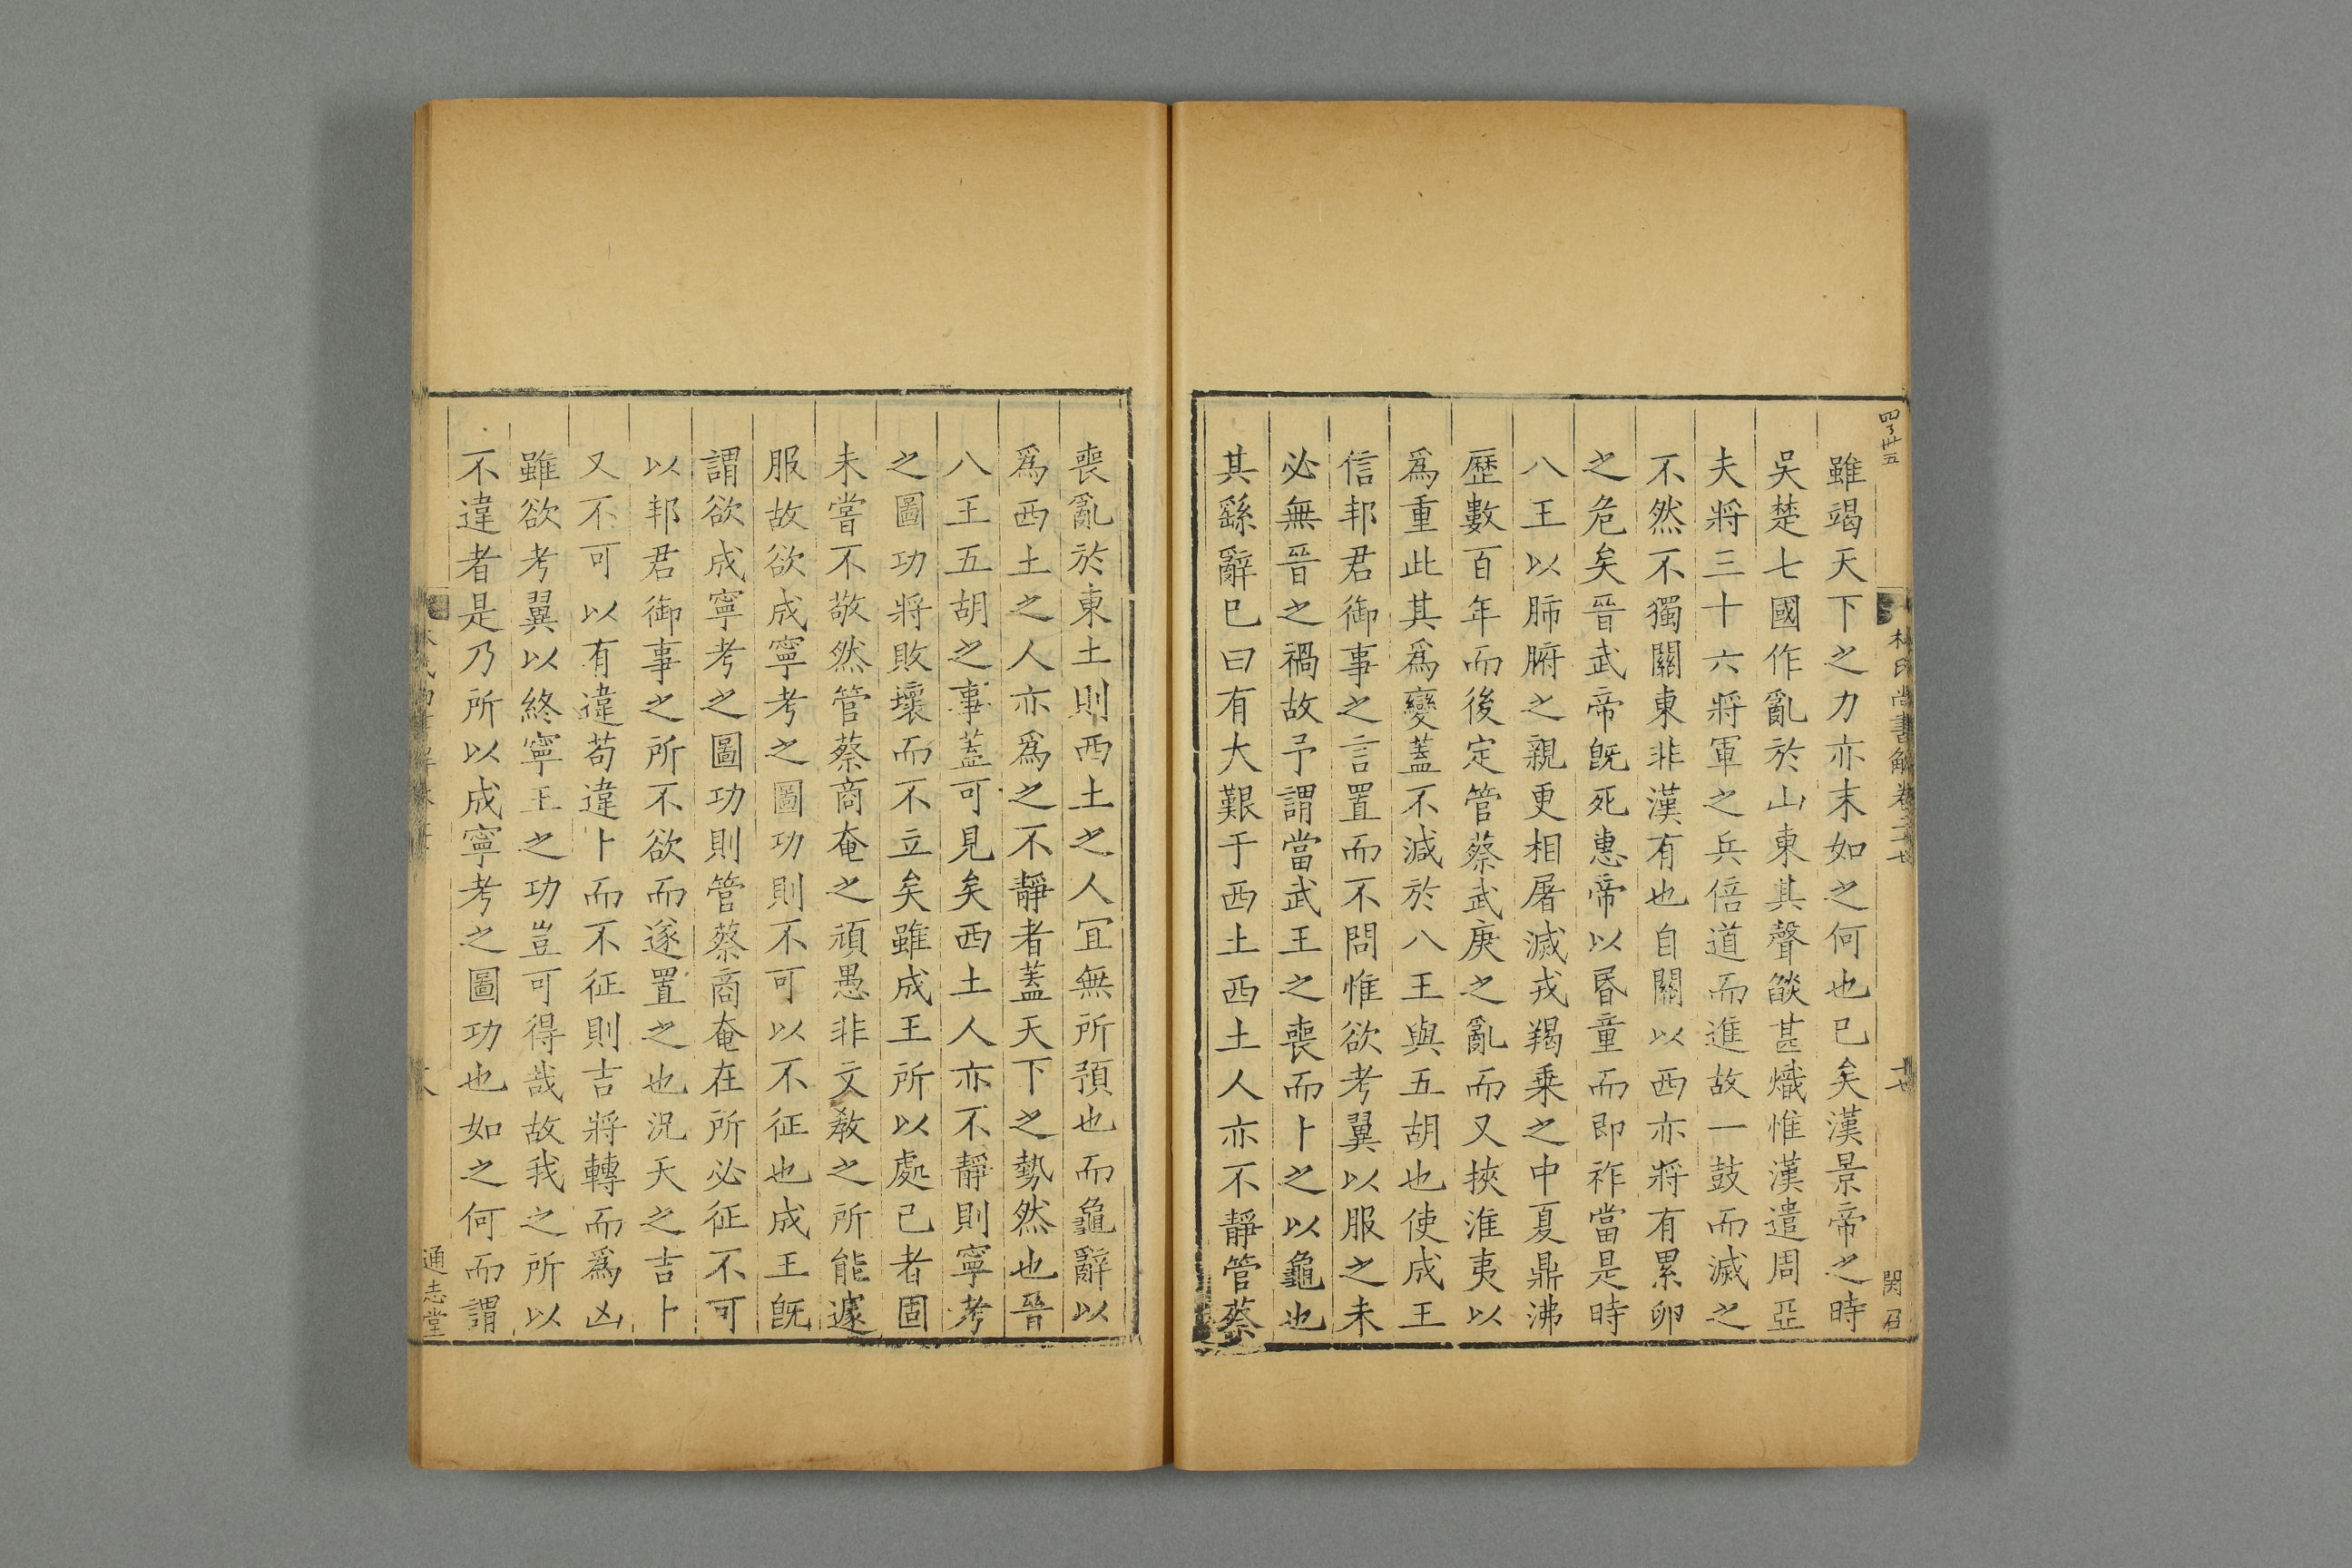 雖竭天下之力亦末如之何也已矣漢景帝之時
吳楚七國作亂於山東其聲燄甚熾惟漢遣周亞
夫將三十六將軍之兵倍道而進故一鼓而滅之
不然不獨關東非漢有也自關以西亦將有累卵
之危矣晉武帝旣死惠帝以昬童而即祚當是時
八王以肺腑之親更相屠滅戎羯乗之中夏鼎沸
歷數百年而後定管蔡武庚之亂而又挾淮夷以
爲重此其爲變蓋不減於八王與五胡也使成王
信邦君御事之言置而不問惟欲考翼以服之未
必無晉之禍故予謂當武王之喪而卜之以龜也
其繇辭巳曰有大艱于西土西土人亦不靜管蔡
喪亂於東土則西土之人宜無所預也而龜辭以
爲西土之人亦爲之不靜者蓋天下之勢然也晉
八王五胡之事蓋可見矣西土人亦不靜則寧考
之圖功將敗壞而不立矣雖成王所以處己者固
未嘗不敬然管蔡商奄之頑愚非文教之所能遽
服故欲成寧考之圖功則不可以不征也成王旣
謂欲成寧考之圖功則管蔡商奄在所必征不可
以邦君御事之所不欲而遂置之也況天之吉卜
又不可以有違苟違卜而不征則吉將轉而爲凶
雖欲考翼以終寧王之功豈可得哉故我之所以
不違者是乃所以成寧考之圖功也如之何而謂
通志堂